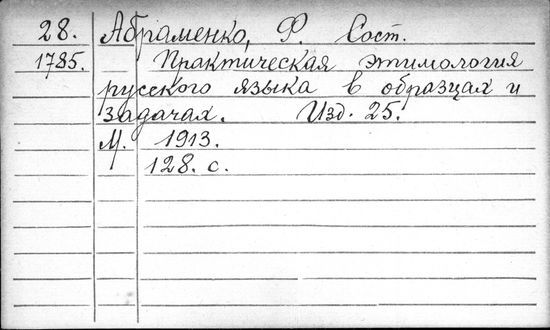 28. Абраменко, Ф. Сост.
1785. Практическая этимология
русского языка в образцах и
задачах. Изд. 25.
М. 1913.
128. с.